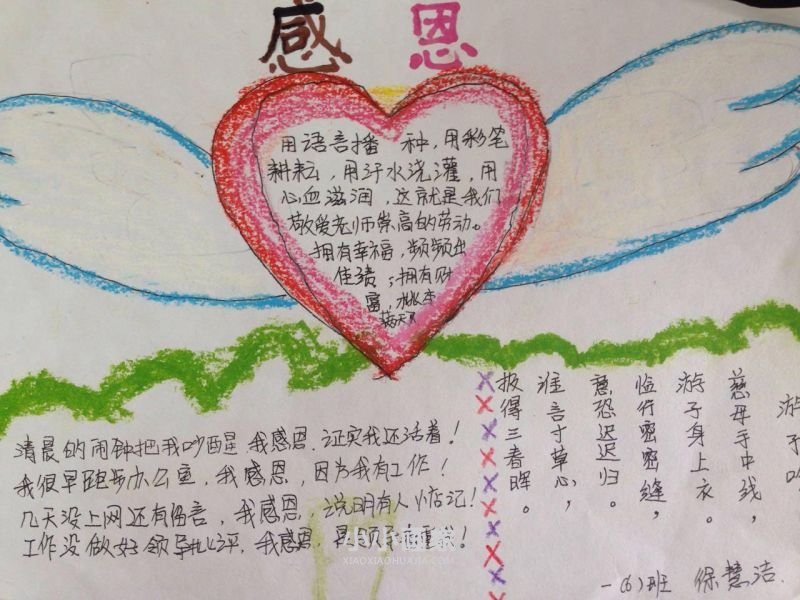 感 恩
用语言播 种,用彩笔
耕耘,用汗水浇灌,用
心血滋润,这就是我们
敬爱老师崇高的劳动。
拥有幸福,频频出
佳绩;拥有财
富,桃李
满天下
游子吟
慈母手中线,
游子身上衣。
临行密密缝,
意恐迟迟归。
谁言寸草心,
报得三者晖。
清晨的闹钟把我吵醒,我感恩,证实我还活着!
我很早跑步办公室,我感恩,因为我有工作!
几天没上网还有留言,我感恩,说明有人惦记!
工作没做好领导批评,我感恩,是领导 重我!
一(6)班 徐慧洁
小小画家
XIAOXIAOHUAJIA.COM